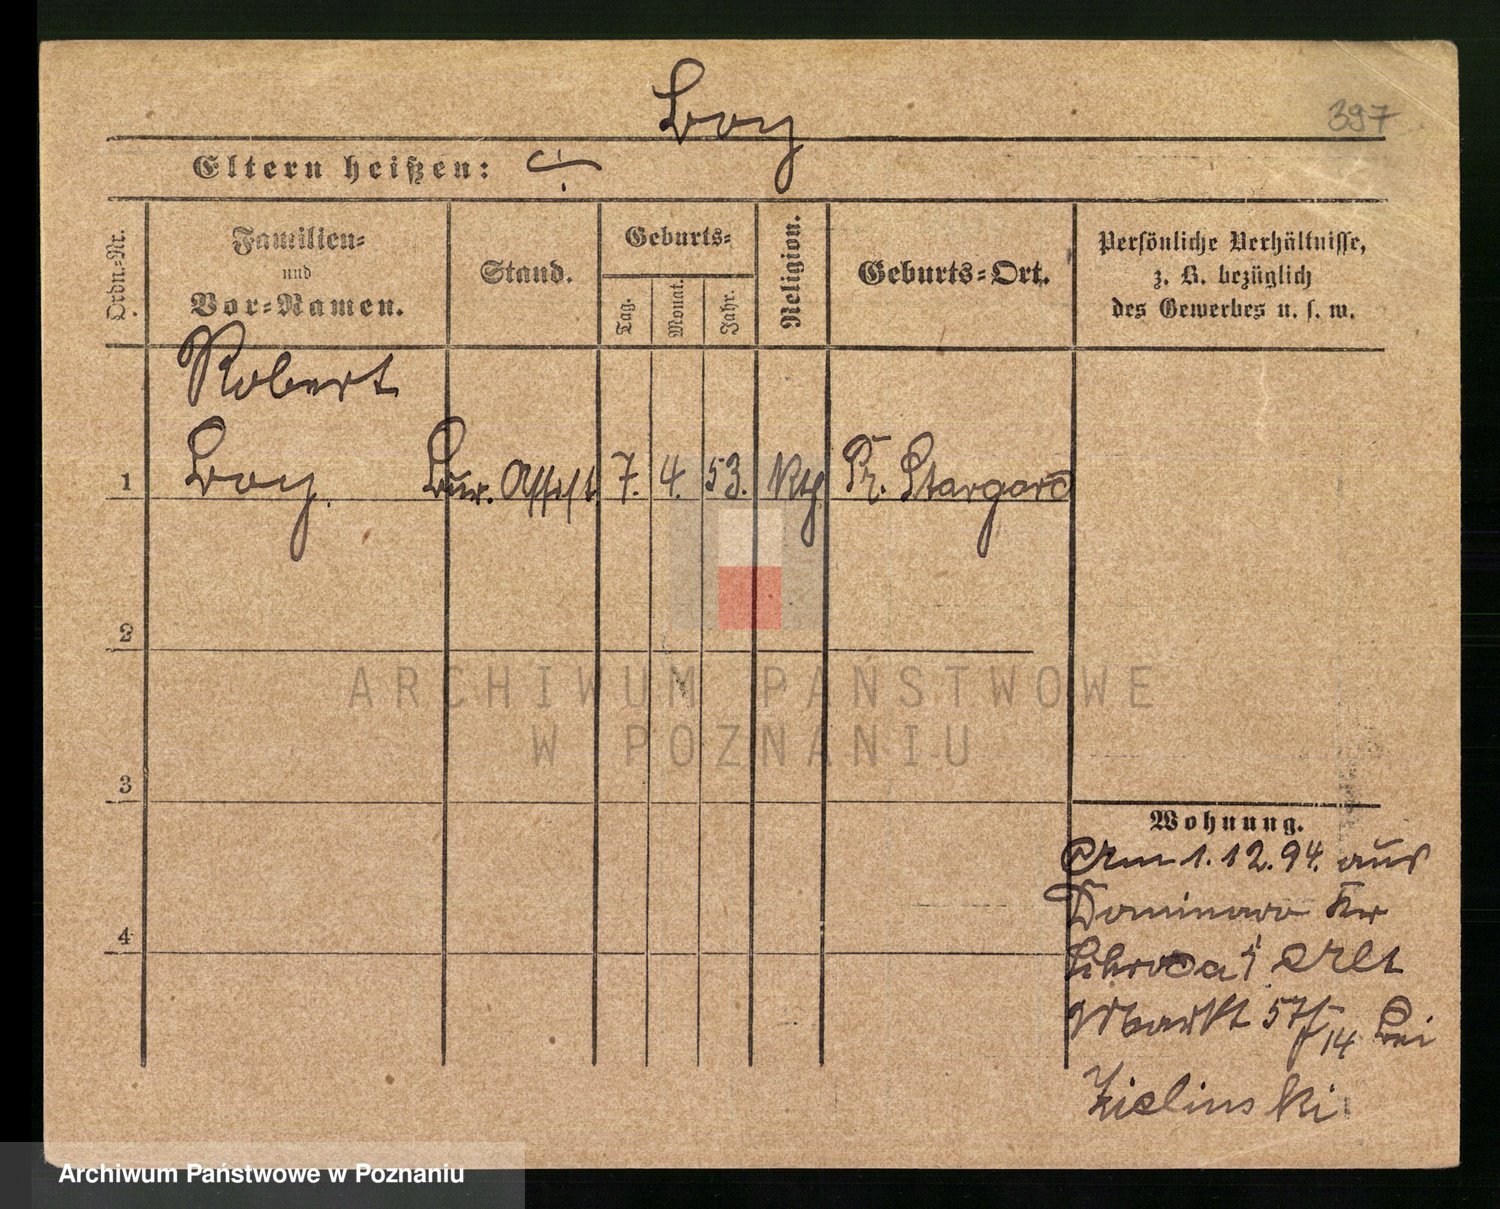 Boy
397
Eltern heißen: ./.
Ordn.-Nr.
Familien-
und
Vor-Namen.
Stand.
Geburts-
Tag.
Monat.
Jahr.
Religion.
Geburts-Ort.
Persönliche Verhältnisse,
z. B. bezüglich
des Gewerbes u. s. w.
Robert
1 Boy. Bur. Assist. 7. 4. 53. Kth Pr. Stargard
2
3
4
Wohnung.
Am 1.12.94. aus
Dominowo Kr
Schroda Alt
Markt 57/14 bei
Zielinski
ARCHIWUM PAŃSTWOWE
W POZNANIU
Archiwum Państwowe w Poznaniu